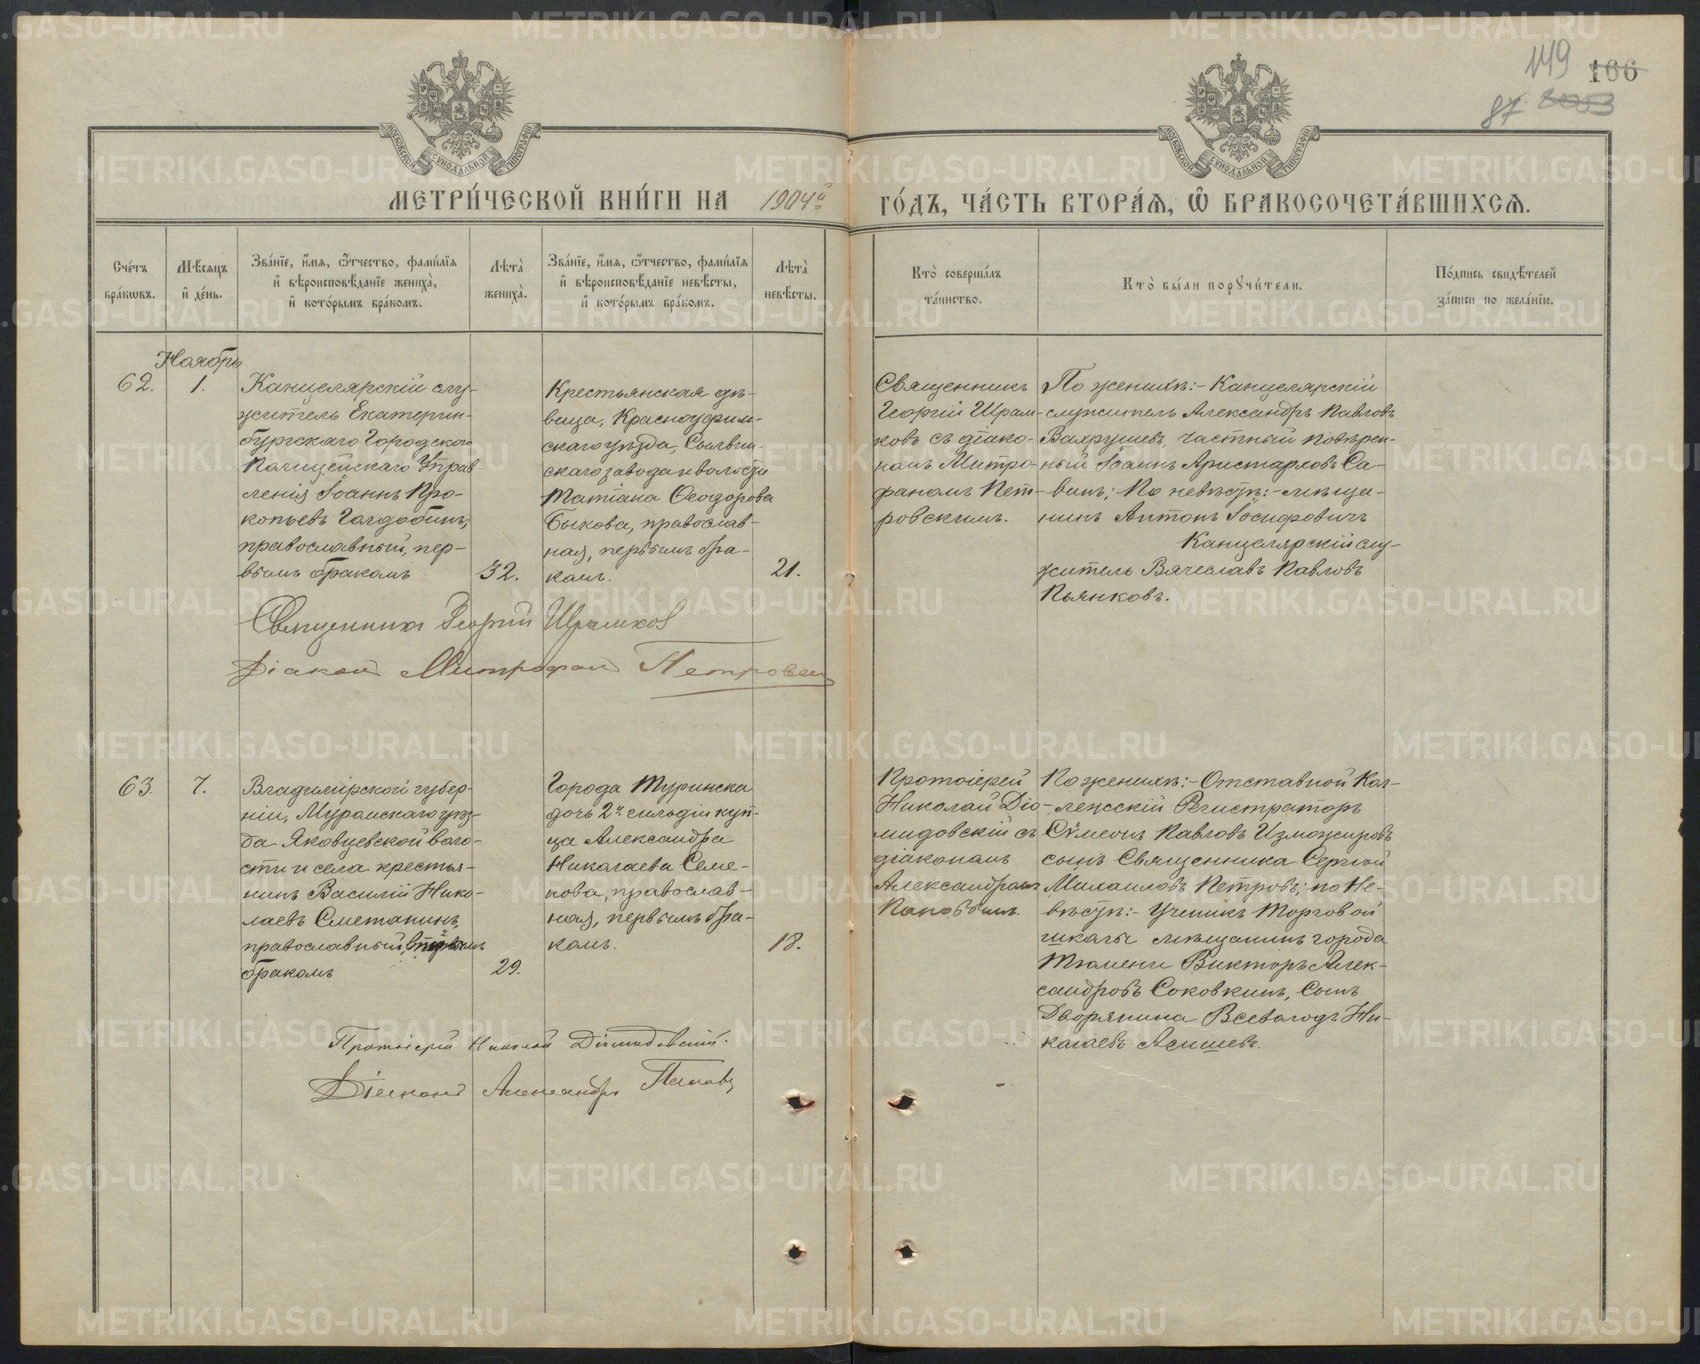 149 166
87 2053
МЕТРИ́ЧЕСКОЙ КНИ́ГИ НА 1904й ГО́ДЪ, ЧА́СТЬ ВТОРА́Я, Ѡ БРАКОСОЧЕТА́ВШИХСЯ.
Сче́тъ
бра́ковъ.
Мѣ́сяцъ
и де́нь.
Зва́ніе, и́мя, ѻ҆́тчество, фами́лія
и҆ вѣроисповѣ́даніе жениха̀,
и҆ кото́рымъ бра́комъ.
Лѣ́та
жениха̀.
Зва́ніе, и́мя, ѻ҆́тчество, фами́лія
и҆ вѣроисповѣ́даніе невѣ́сты,
и҆ кото́рымъ бра́комъ.
Лѣ́та
невѣ́сты.
Кто̀ соверша́лъ
та́инство.
Кто̀ бы́ли поручи́тели.
По́дпись свидѣ́телей
за́писи по жела́нію.
Ноябрь
62.
1.
Канцелярскій слу-
житель Екатерин-
бургскаго Городскаго
Полицейскаго Управ
ленія Іоаннъ Про-
копьевъ Голдобинъ,
православный, пер-
вымъ бракомъ
32.
Крестьянская дѣ-
вица, Красноуфим-
скаго уѣзда, Сылвин-
скаго завода и волости
Татіана Ѳеодорова
Быкова, православ-
ная, первымъ бра-
комъ.
21.
Священникъ
Георгій Шрам-
ковъ съ діако-
номъ Митро-
фаномъ Пет-
ровскимъ.
По женихѣ:- Канцелярскій
служитель Александръ Павловъ
Вахрушевъ, частный повѣрен-
ный Іоаннъ Аристарховъ Са-
винъ; По невѣстѣ:- мѣща-
нинъ Антонъ Іосифовичъ
Канцелярскій слу-
житель Вячеславъ Павловъ
Пьянковъ.
Священникъ Георгій Шрамковъ
Діаконъ Митрофанъ Петровскій
63.
7.
Владимірской губер-
ніи, Муромскаго уѣз-
да Яковцевской воло-
сти и села крестья-
нинъ Василій Нико-
лаевъ Сметанинъ,
православный,
бракомъ
29.
Города Туринска
дочь 2й гильдіи куп-
ца Александра
Николаева Семе-
нова, православ-
ная, первымъ бра-
комъ.
18.
Протоіерей
Николай Діо-
мидовскій съ
діакономъ
Александромъ
Поповымъ.
По женихѣ:- Отставной Кол-
лежскій Регистраторъ
Сѵмеонъ Павловъ Изможеровъ
сынъ Священника Сергій
Михаиловъ Петровъ; по Не-
вѣстѣ:- Ученикъ Торговой
школы мѣщанинъ города
Тюмени Викторъ Алек-
сандровъ Соковкинъ, Сынъ
Дворянина Всеволодъ Ни-
колаевъ Асишевъ.
Протоіерей Николай Діомидовскій.
Діаконъ Александръ Поповъ
METRIKI.GASO-URAL.RU